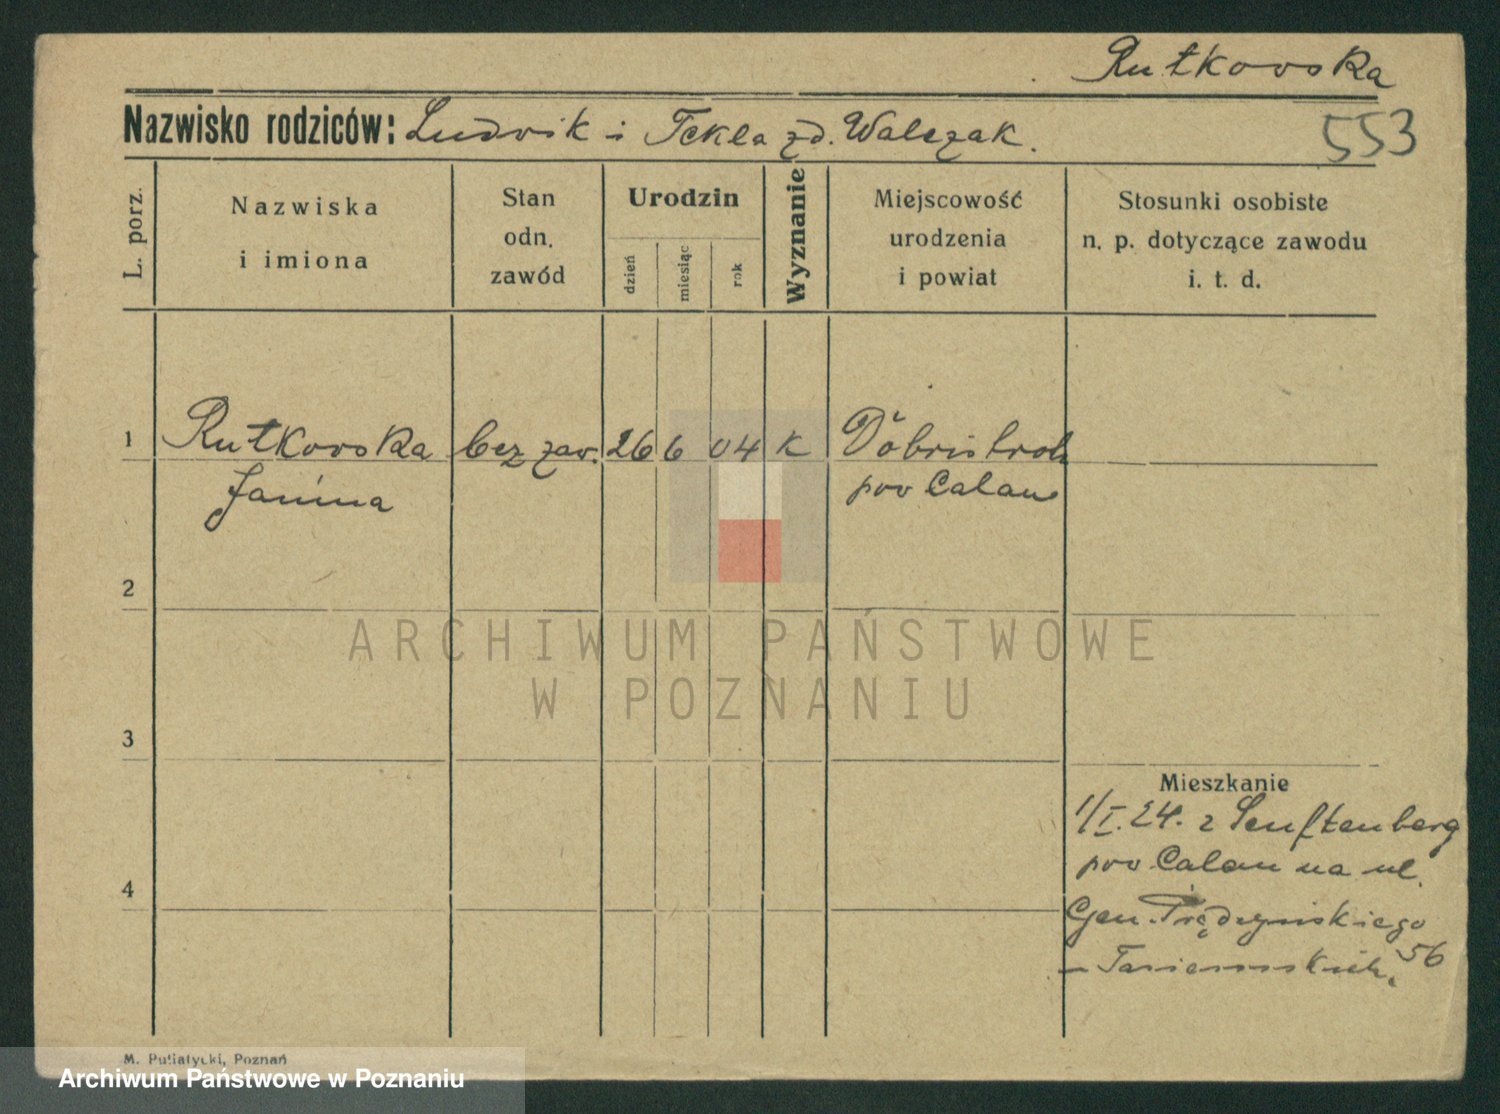 Rutkowska
Nazwisko rodziców: Ludwik i Tekla zd. Walczak.
553
L. porz.
Nazwiska
i imiona
Stan
odn.
zawód
Urodzin
dzień
miesiąc
rok
Wyznanie
Miejscowość
urodzenia
i powiat
Stosunki osobiste
n. p. dotyczące zawodu
i. t. d.
1 Rutkowska bez zaw. 26 6 04 k Döbristroh
Janina pow Calau
2
ARCHIWUM PAŃSTWOWE
W POZNANIU
3
Mieszkanie
1/I. 24. z Senftenberg
pow Calau na ul.
4
Gen. Prądzyńskiego
56
M. Putiatycki, Poznań
Archiwum Państwowe w Poznaniu